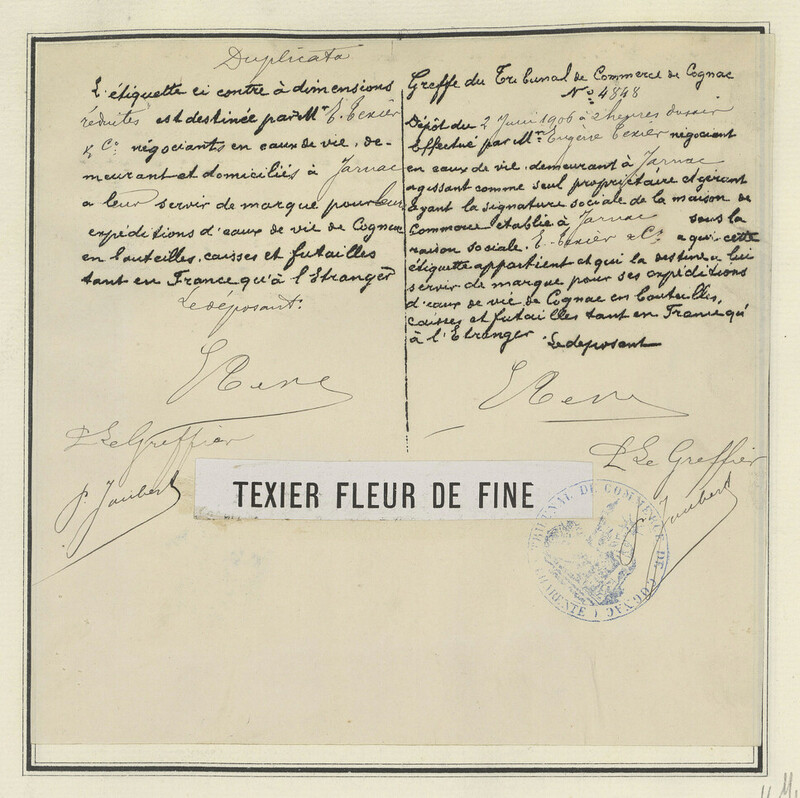 Duplicata
L'étiquette ci contre à dimensions
réduites est destinée par Mr E. Texier
& Co négociants en eaux de vie, de-
meurant et domiciliés à Jarnac
a leur servir de marque pour leurs
expéditions d'eaux de vie de Cognac
en bouteilles, caisses et futailles
tant en France qu'à l'Etranger
Le déposant:
P Le Greffier
P. Joubert
Greffe du Tribunal de Commerce de Cognac
No 4848
Dépôt du 2 Juin 1906 à 2 heures du soir
Effectué par Mr Eugène Texier négociant
en eaux de vie, demeurant à Jarnac
agissant comme seul propriétaire et gérant
ayant la signature sociale de la maison de
Commerce établie à Jarnac sous la
raison sociale. E. Texier & Co a qui cette
étiquette appartient et qui la destine a lui
servir de marque pour ses expéditions
d'eaux de vie de Cognac en bouteilles,
caisses et futailles tant en France qu'
à l'Etranger
Le deposant
P Le Greffier
Joubert
TEXIER FLEUR DE FINE
TRIBUNAL DE COMMERCE DE COGNAC
(CHARENTE)